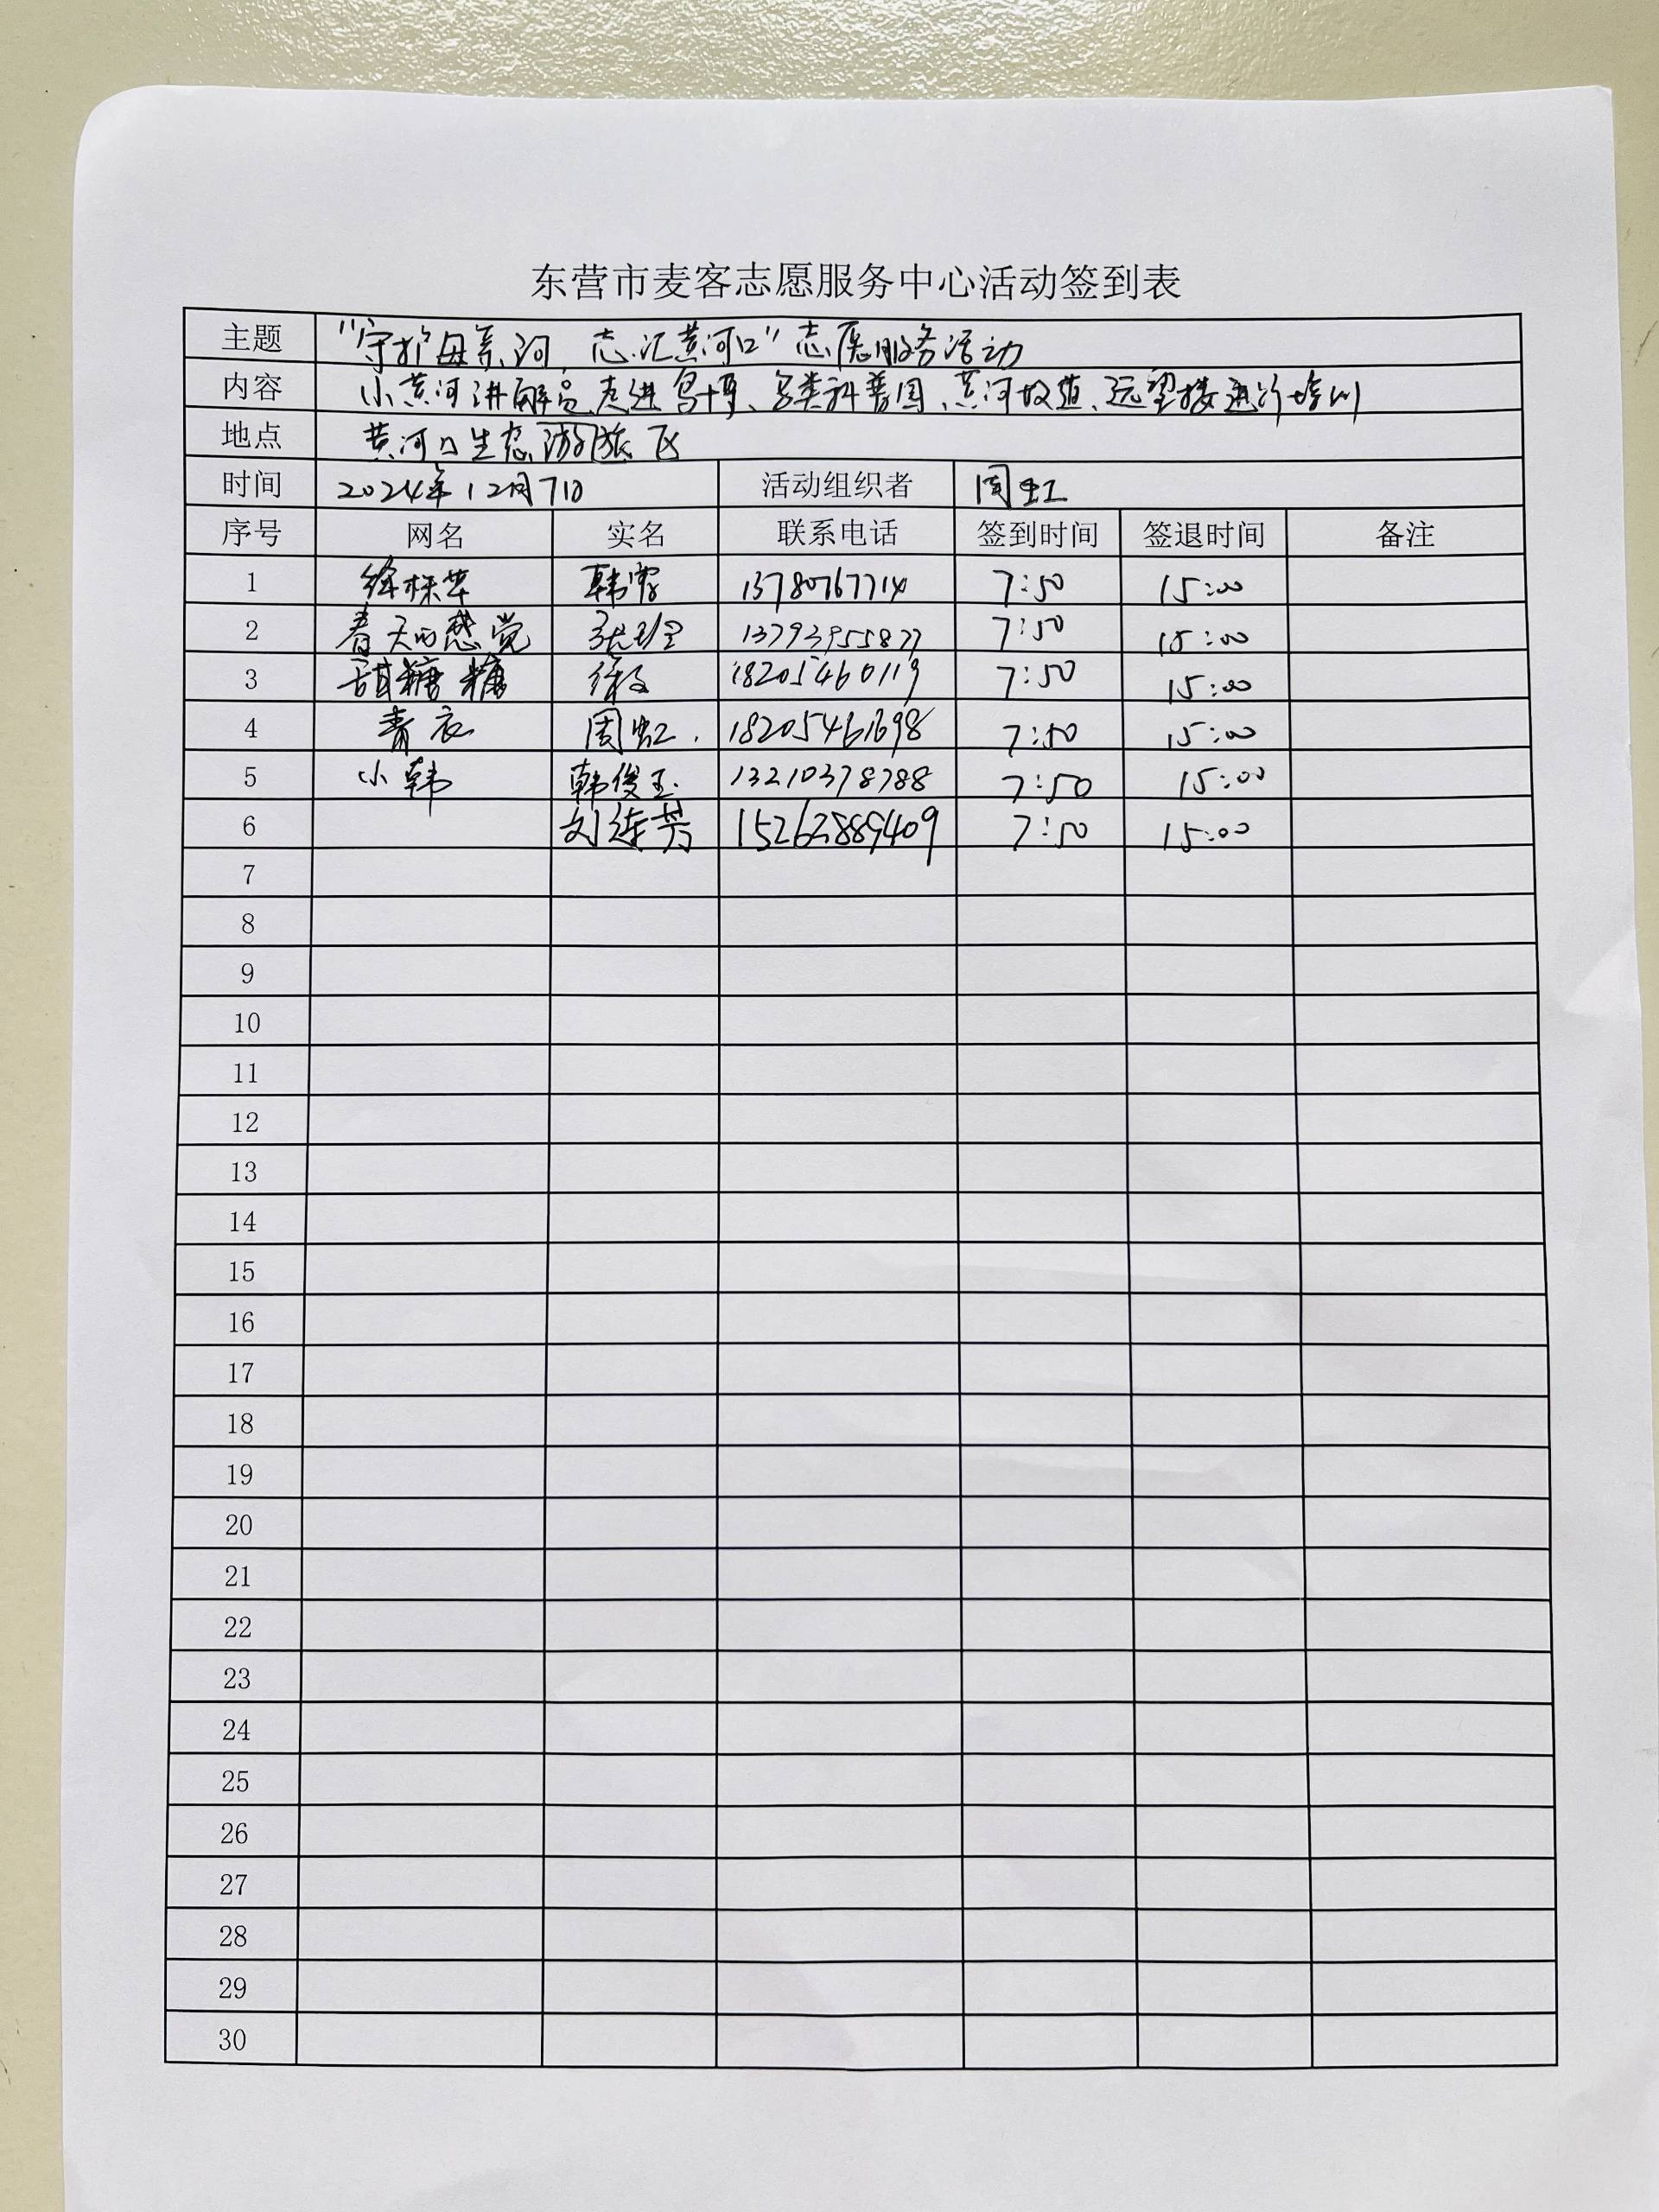 东营市麦客志愿服务中心活动签到表
主题 "守护母亲河,志汇黄河口"志愿服务活动
内容 小黄河讲解员走进鸟博、鸟类科普园、黄河故道、远望楼进行培训
地点 黄河口生态旅游区
时间 2024年12月7日 活动组织者 周虹
序号 网名 实名 联系电话 签到时间 签退时间 备注
1 韩霞 13780767714 7:50 15:00
2 春天的感觉 13793955877 7:50 15:00
3 甜糖糖 18205460119 7:50 15:00
4 青衣 周虹 18205461698 7:50 15:00
5 小韩 韩俊玉 13210378788 7:50 15:00
6 刘连芳 15262889409 7:50 15:00
7
8
9
10
11
12
13
14
15
16
17
18
19
20
21
22
23
24
25
26
27
28
29
30